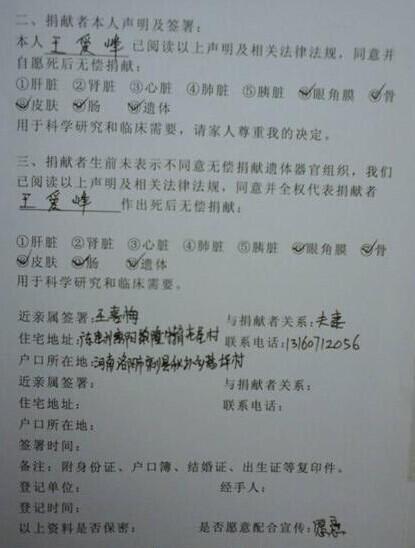 二、捐献者本人声明及签署：
本人王爱峰已阅读以上声明及相关法律法规，同意并
自愿死后无偿捐献：
①肝脏 ②肾脏 ③心脏 ④肺脏 ⑤胰脏 ⑥眼角膜 ⑦骨
⑧皮肤 ⑨肠 ⑩遗体
用于科学研究和临床需要，请家人尊重我的决定。
三、捐献者生前未表示不同意无偿捐献遗体器官组织，我们
已阅读以上声明及相关法律法规，同意并全权代表捐献者
王爱峰 作出死后无偿捐献：
①肝脏 ②肾脏 ③心脏 ④肺脏 ⑤胰脏 ⑥眼角膜 ⑦骨
⑧皮肤 ⑨肠 ⑩遗体
用于科学研究和临床需要。
近亲属签署：王 梅 与捐献者关系：夫妻
住宅地址： 村 联系电话：13160712056
户口所在地：河南洛阳市 县 村
近亲属签署： 与捐献者关系：
住宅地址： 联系电话：
户口所在地：
签署时间：
备注：附身份证、户口簿、结婚证、出生证等复印件。
登记单位： 经手人：
登记时间：
以上资料是否保密： 是否愿意配合宣传：愿意